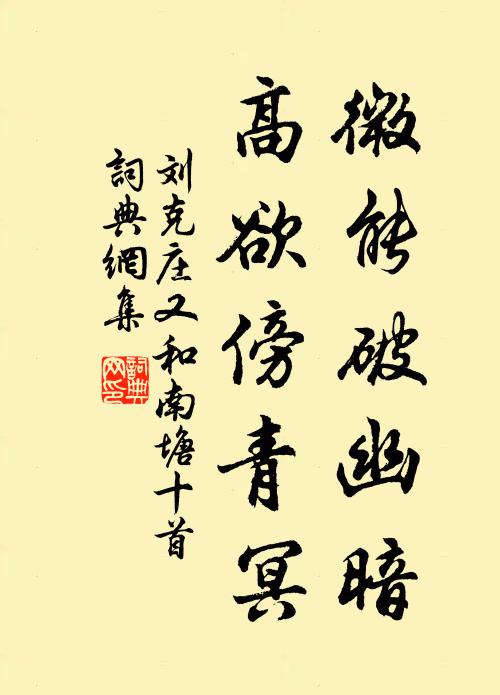 微能破幽暗
高欲傍青冥
刘克庄又和南塘十首
詞典網集
詞典网印